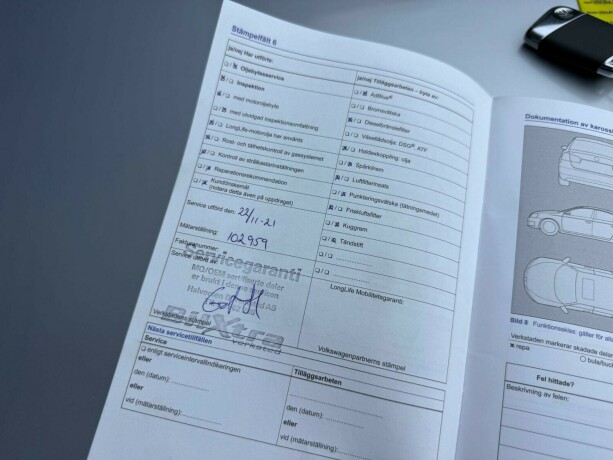 Stämpelfält 6
ja/nej Har utförts:
Oljebytesservice
Inspektion
med motoroljebyte
med utvidgad inspektionsomfattning
LongLife-motorolja har använts
Rost- och täthetskontroll av gassystemet
Kontroll av strålkastarinställningen
Reparationsrekommendation
Kundönskemål
(notera detta även på uppdraget)
Service utförd den: 22/11-21
Mätarställning: 102959
Fakturanummer:
Service utförd av:
Servicegaranti
BilXtra
verksted
Verkstadens stämpel
ja/nej Tilläggsarbeten – byte av:
AdBlue®
Bromsvätska
Dieselbränslefilter
Växellådsolja: DSG®, ATF
Haldexkoppling: olja
Spårkörem
Luftfilterinsats
Punkteringsvätska (tätningsmedel)
Friskluftsfilter
Kuggrem
Tändstift
LongLife Mobilitetsgaranti:
Volkswagenpartnerns stämpel
Nästa servicetillfällen
Service
enligt serviceintervallindikeringen
eller
den (datum):
eller
vid (mätarställning):
Tilläggsarbeten
den (datum):
eller
vid (mätarställning):
Dokumentation av kaross
Bild 8 Funktionsskiss: gäller för
Verkstaden markerar skadade delar
repa
Fel hittade?
Beskrivning av felen: